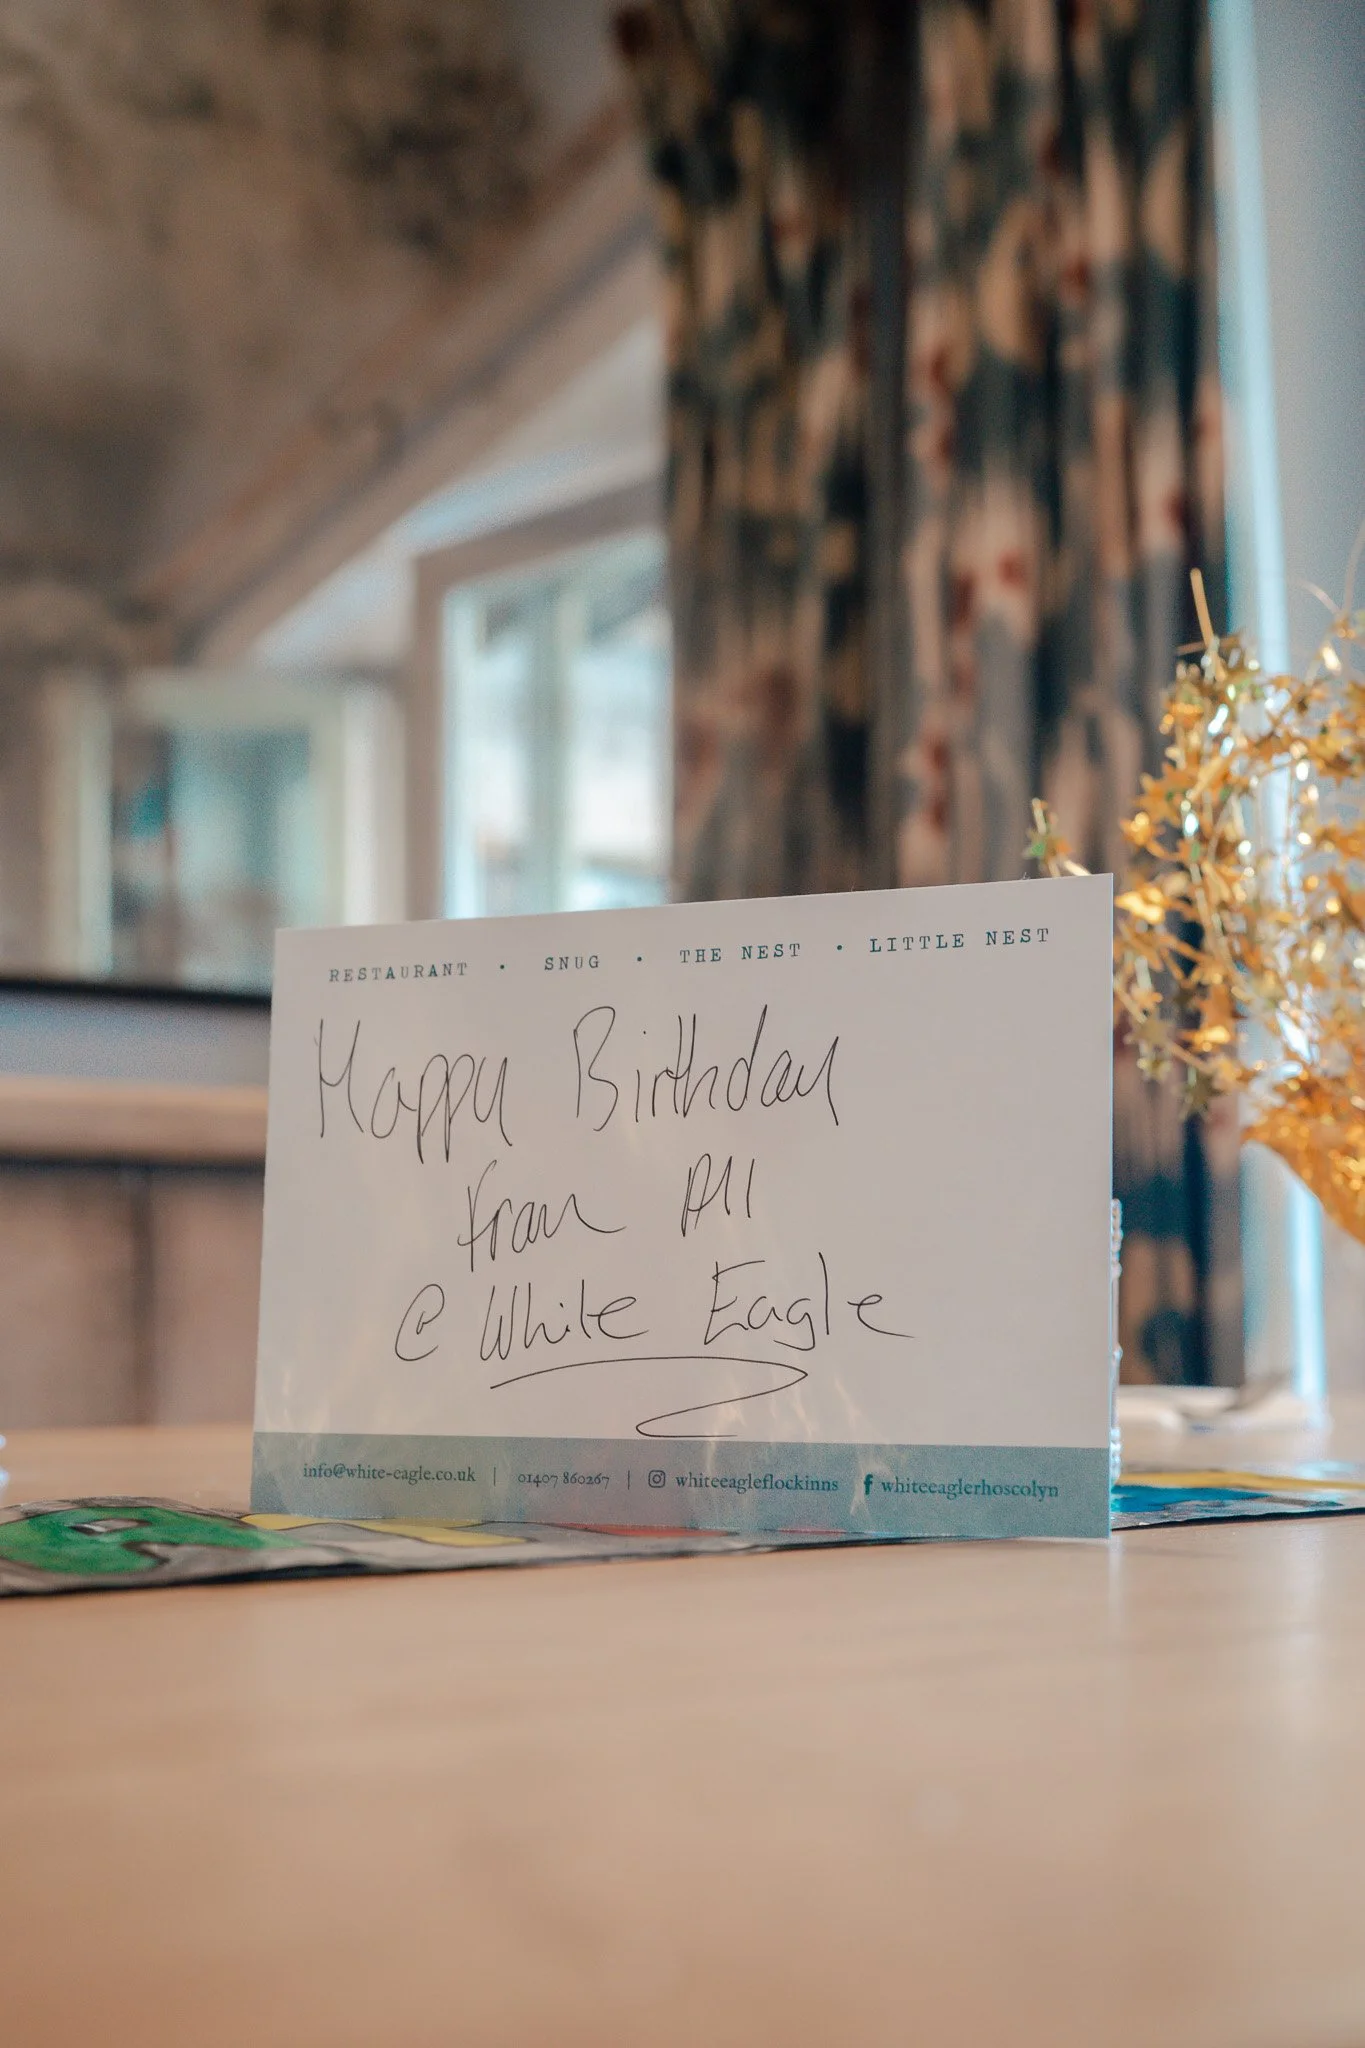 RESTAURANT • SNUG • THE NEST • LITTLE NEST
Happy Birthday
from All
@ White Eagle
info@white-eagle.co.uk | 01407 860267 | whiteeagleflockinns f whiteeaglerhoscolyn